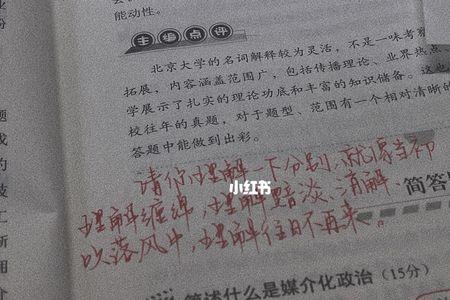 能动性。
主编点评
北京大学的名词解释较为灵活，不是一味考察
拓展，内容涵盖范围广，包括传播理论、业界热点
学展示了扎实的理论功底和丰富的知识储备。这也
校往年的真题，对于题型、范围有一个相对清晰的
答题中能做到出彩。
请你理解一下分别，就像当初
小红书
理解缠绵，理解黯淡、消解
简答
以落风中，理解往日不再来。
简述什么是媒介化政治（15分）